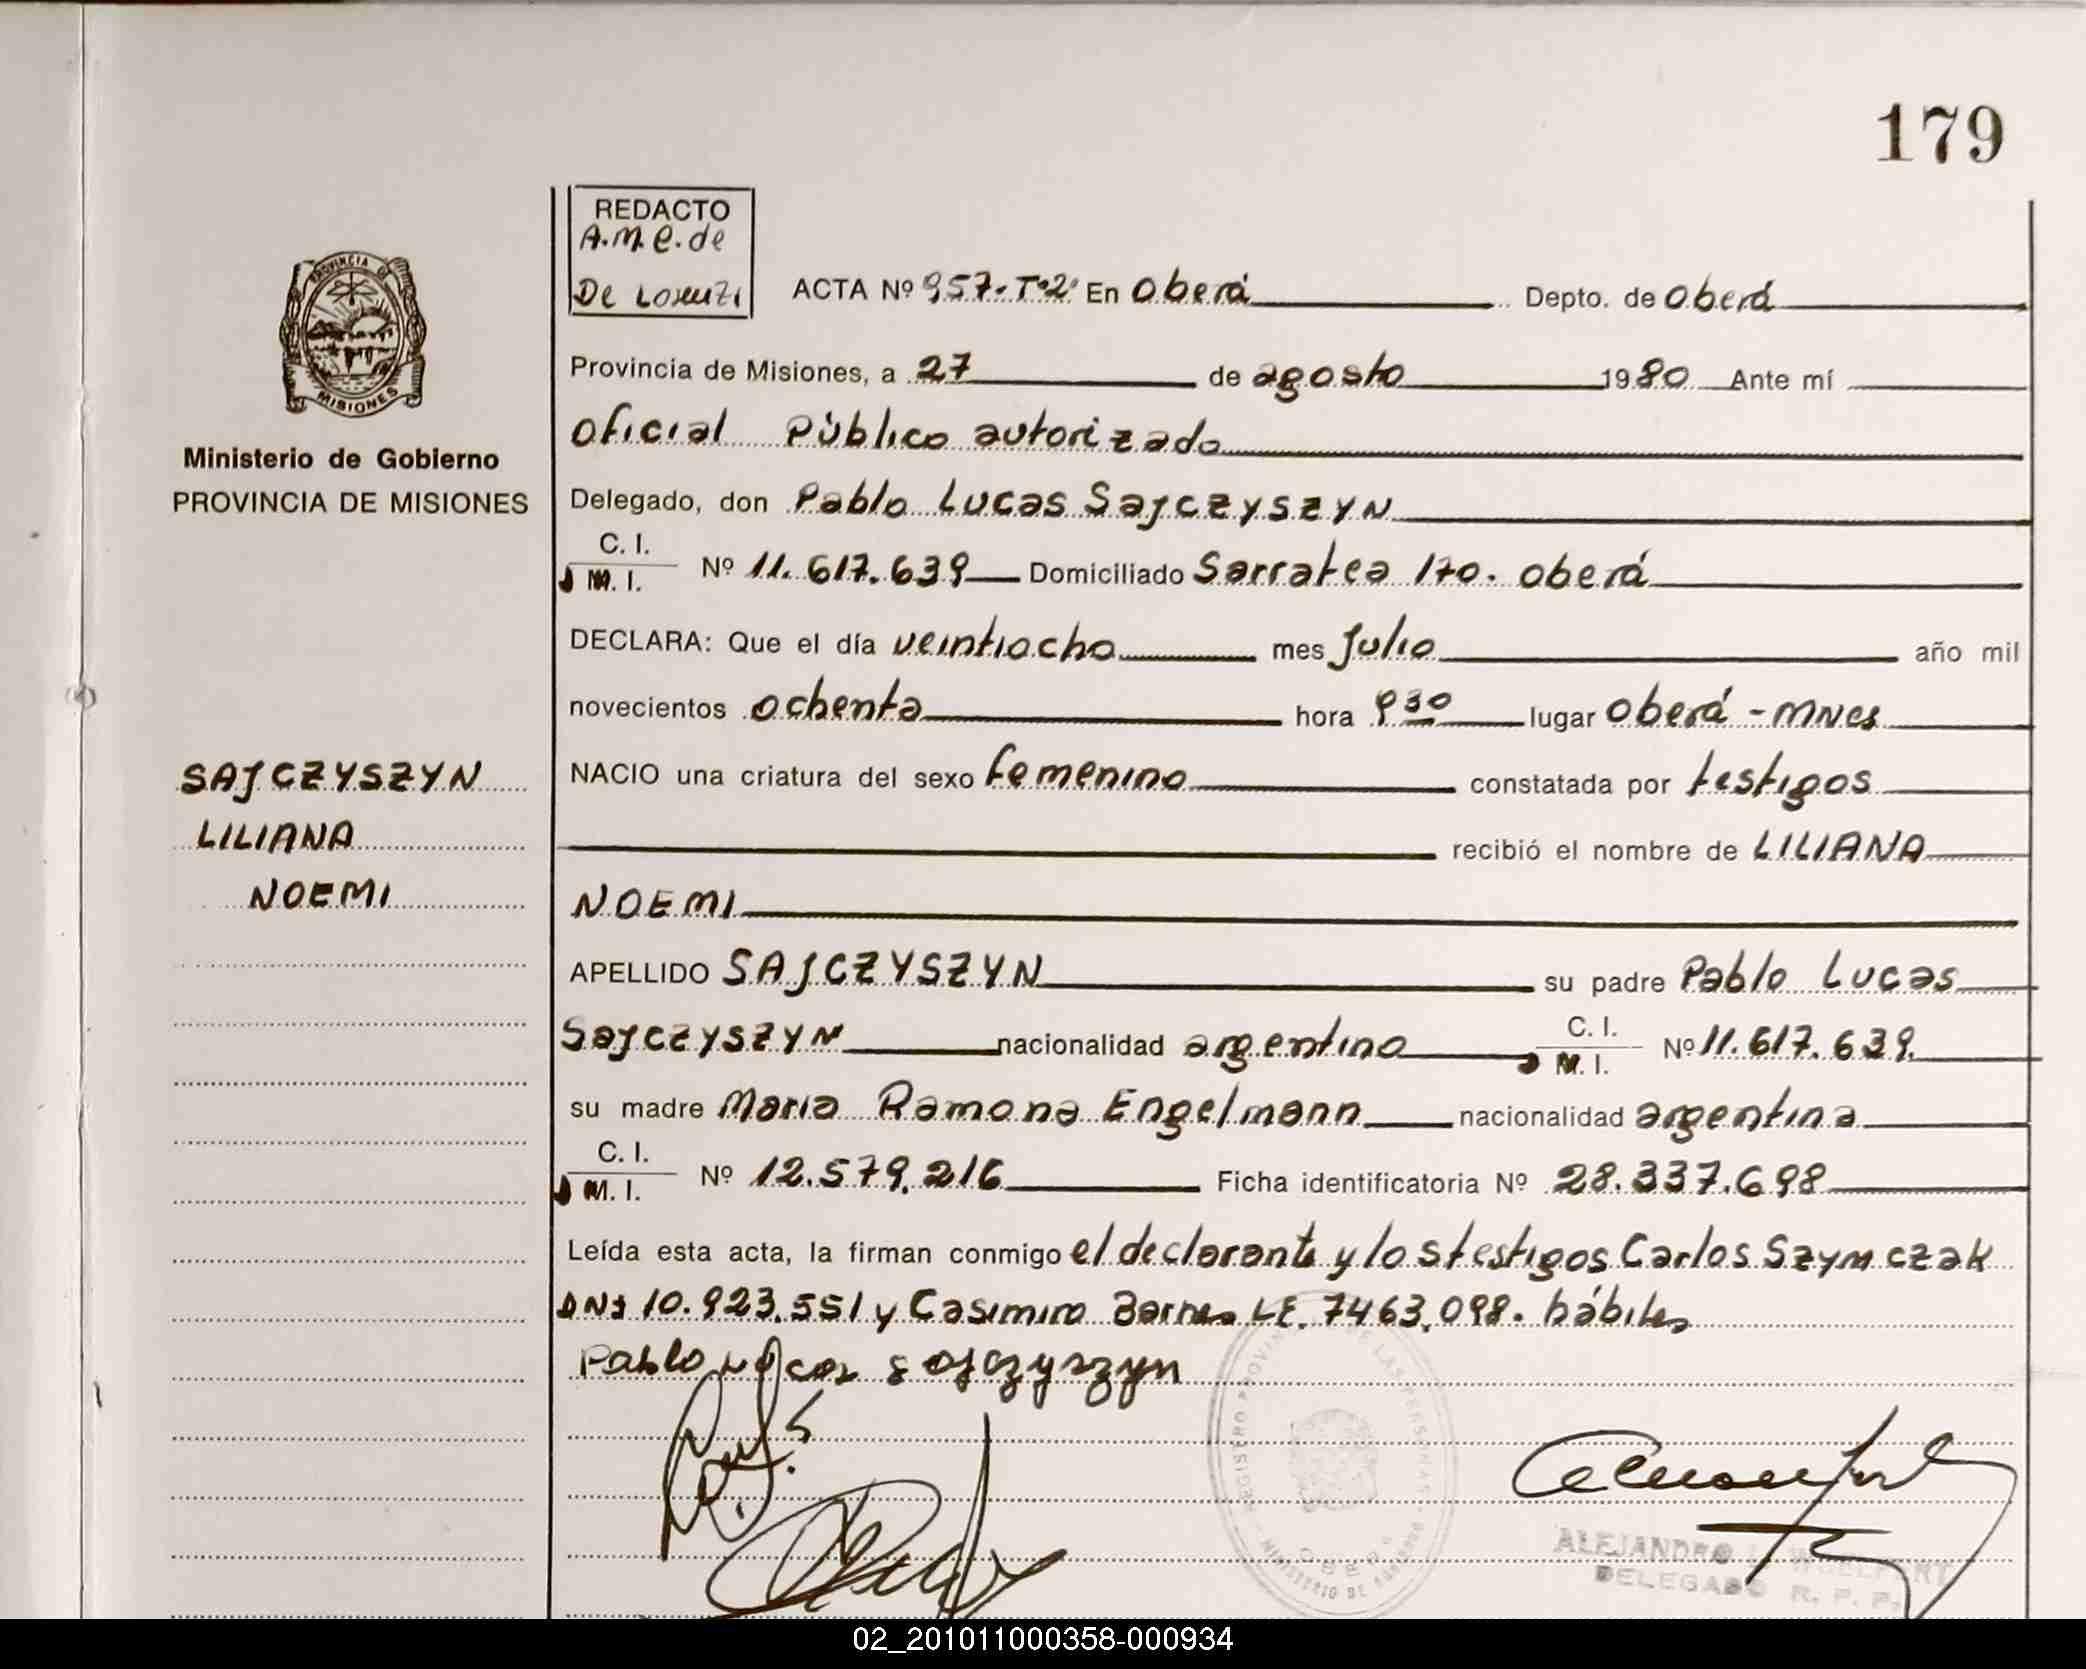 179
REDACTO
A.M.E. de
De Lorenzi
ACTA Nº 957-Tº2º En Oberá Depto. de Oberá
Provincia de Misiones, a 27 de agosto 1980 Ante mí
Oficial Público autorizado
Delegado, don Pablo Lucas Sajczyszyn
C. I.
M. I. Nº 11.617.639 Domiciliado Sarratea 170. Oberá
DECLARA: Que el día veintiocho mes Julio año mil
novecientos ochenta hora 930 lugar Oberá - Mnes
NACIO una criatura del sexo femenino constatada por testigos
recibió el nombre de LILIANA
NOEMI
APELLIDO SAJCZYSZYN su padre Pablo Lucas
Sajczyszyn nacionalidad argentino C. I. M. I. Nº 11.617.639.
su madre Maria Ramona Engelmann nacionalidad argentina
C. I.
M. I. Nº 12.579.216 Ficha identificatoria Nº 28.337.698
Leída esta acta, la firman conmigo el declarante y los testigos Carlos Szymczak
DNI 10.923.551 y Casimiro LE. 7463.098. hábiles
Pablo Lucas Sajczyszyn
PROVINCIA DE
MISIONES
Ministerio de Gobierno
PROVINCIA DE MISIONES
SAJCZYSZYN
LILIANA
NOEMI
REGISTRO PROVINCIAL DE LAS PERSONAS
OBERA
MINISTERIO DE GOBIERNO
ALEJANDRO
DELEGADO R. P. P.
02_201011000358-000934